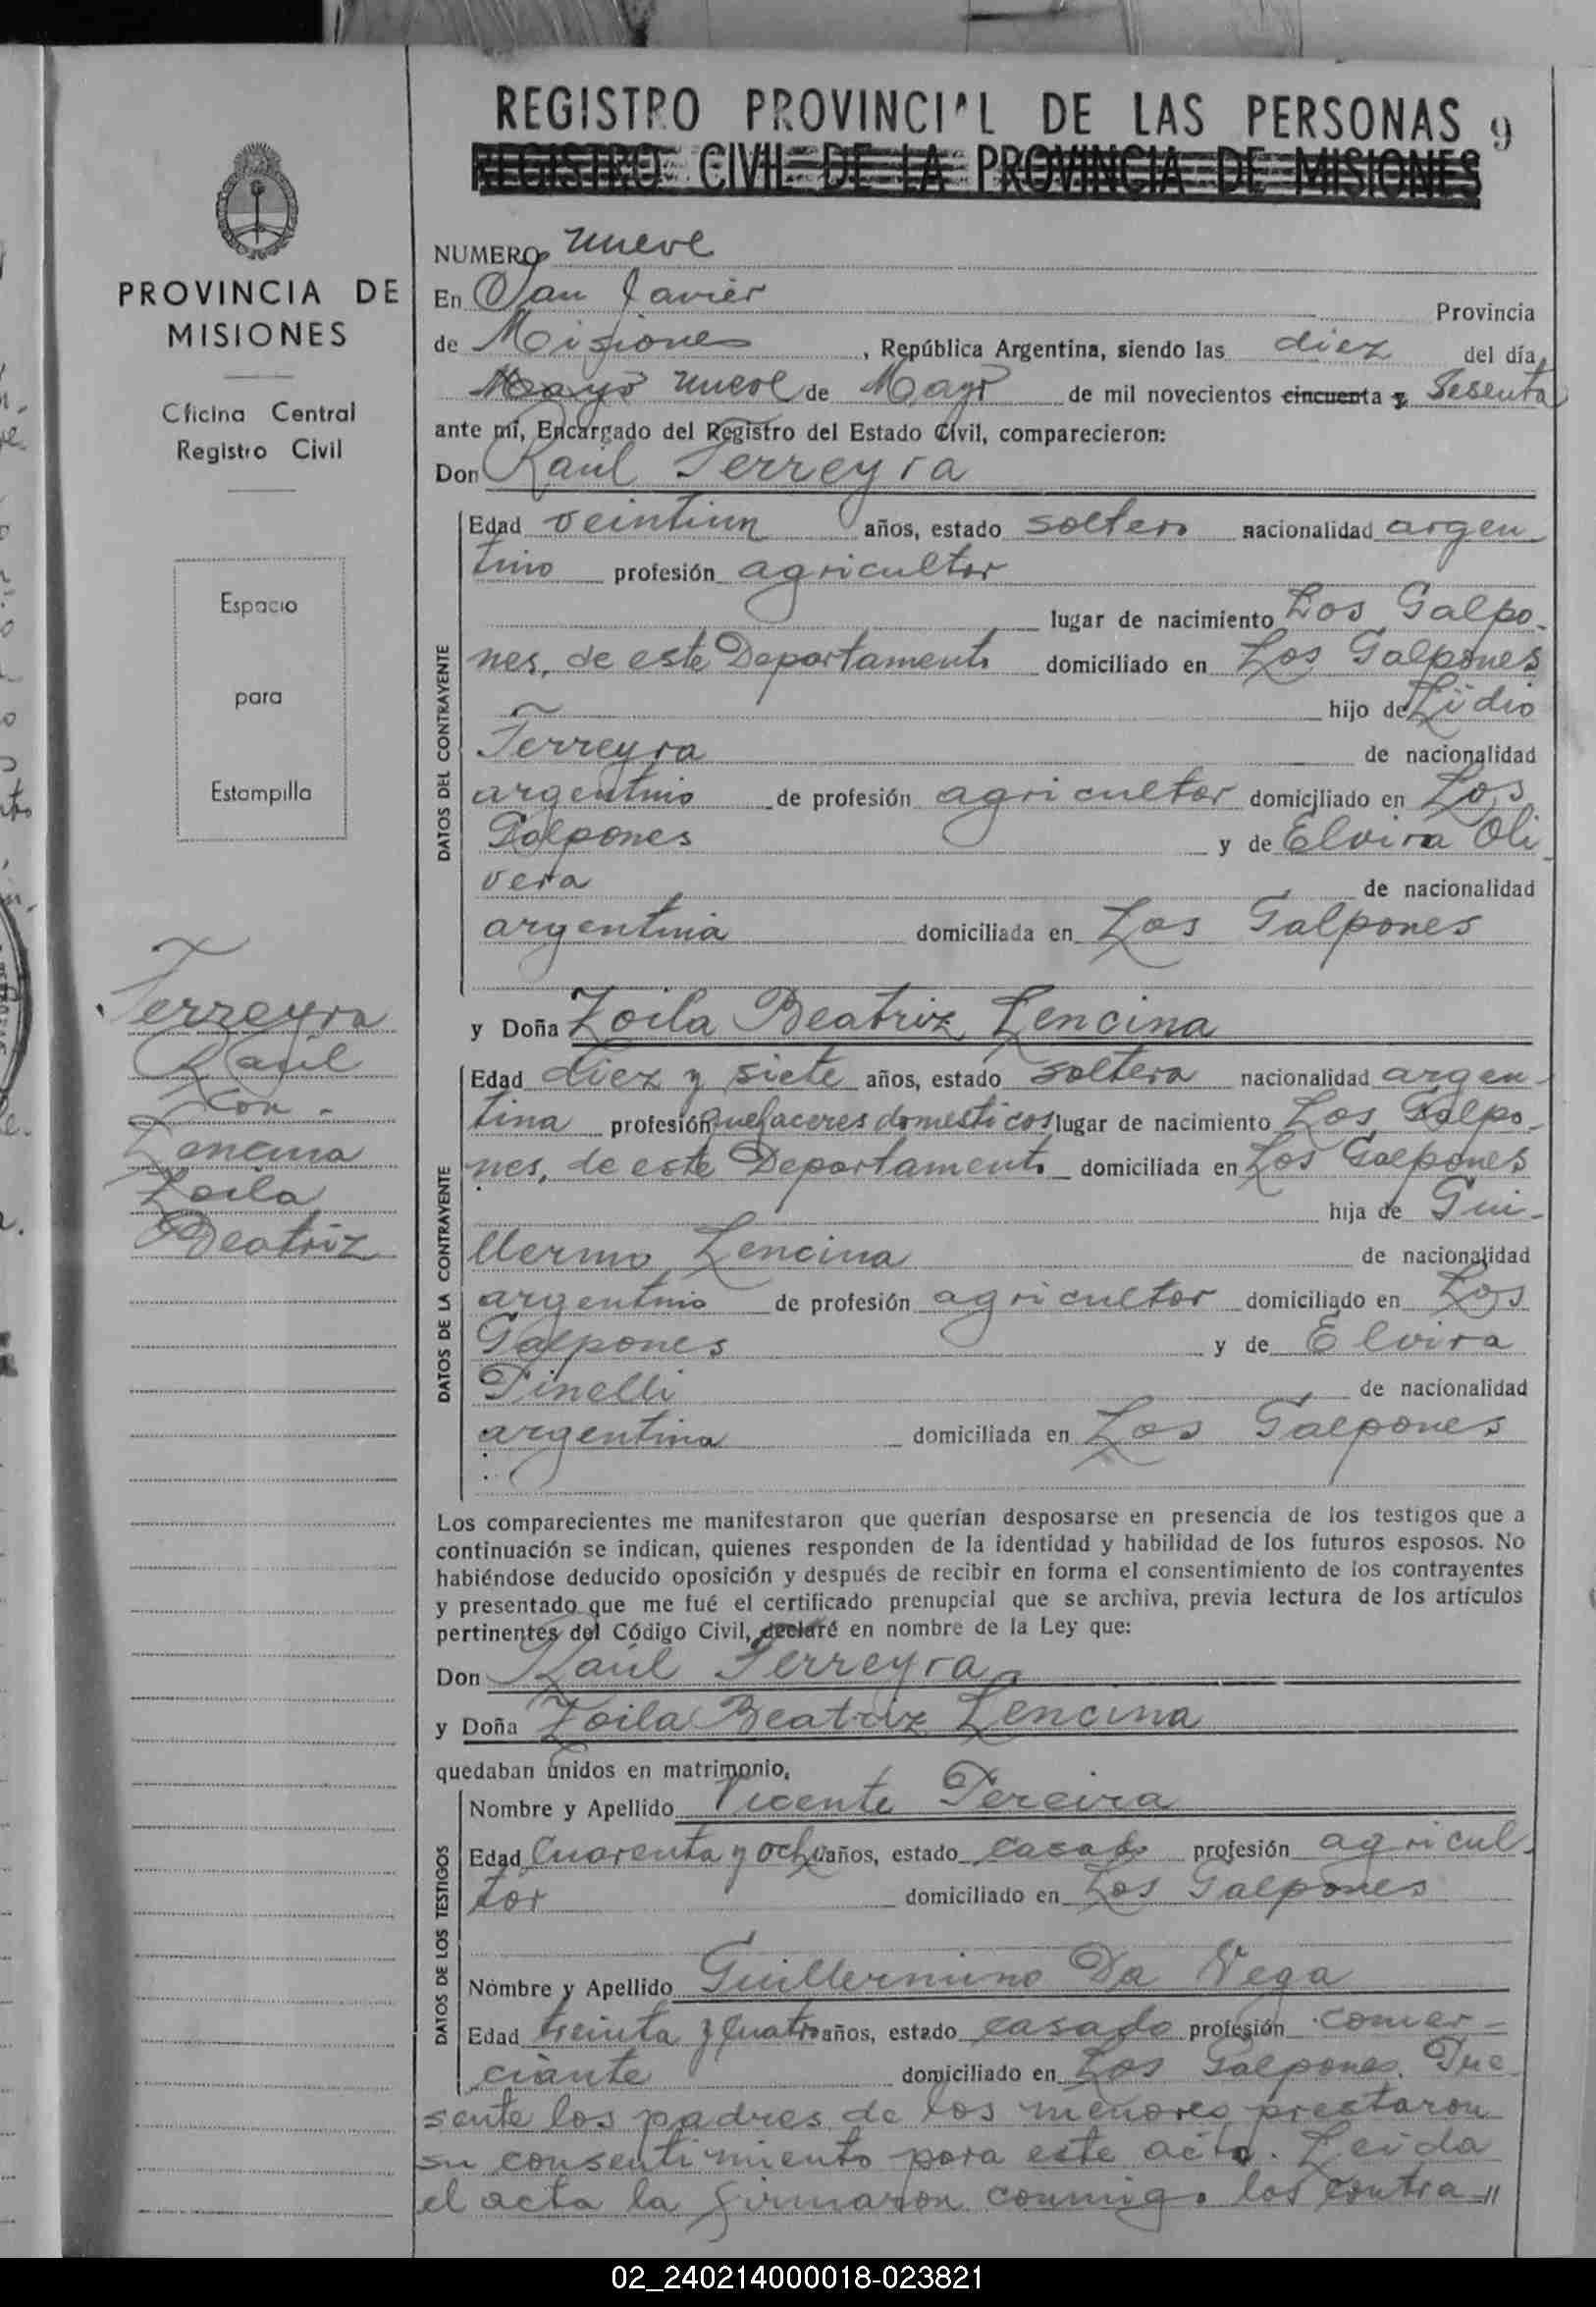 REGISTRO PROVINCIAL DE LAS PERSONAS 9
REGISTRO CIVIL DE LA PROVINCIA DE MISIONES
PROVINCIA DE
MISIONES
Oficina Central
Registro Civil
Espacio
para
Estampilla
Ferreyra
Raúl
con -
Lencina
Zoila
Beatriz
NUMERO nueve
En San Javier Provincia
de Misiones, República Argentina, siendo las diez del día
Mayo nueve de Mayo de mil novecientos cincuenta y Sesenta
ante mí, Encargado del Registro del Estado Civil, comparecieron:
Don Raúl Ferreyra
DATOS DEL CONTRAYENTE
Edad veintiun años, estado soltero nacionalidad argen-
tino profesión agricultor
lugar de nacimiento Los Galpo-
nes, de este Departamento domiciliado en Los Galpones
hijo de Lidio
Ferreyra de nacionalidad
argentino de profesión agricultor domiciliado en Los
Galpones y de Elvira Oli-
vera de nacionalidad
argentina domiciliada en Los Galpones
y Doña Zoila Beatriz Lencina
DATOS DE LA CONTRAYENTE
Edad diez y siete años, estado soltera nacionalidad argen-
tina profesión quehaceres domesticos lugar de nacimiento Los Galpo-
nes, de este Departamento domiciliada en Los Galpones
hija de Gui-
llermo Lencina de nacionalidad
argentino de profesión agricultor domiciliado en Los
Galpones y de Elvira
Pinelli de nacionalidad
argentina domiciliada en Los Galpones
Los comparecientes me manifestaron que querían desposarse en presencia de los testigos que a
continuación se indican, quienes responden de la identidad y habilidad de los futuros esposos. No
habiéndose deducido oposición y después de recibir en forma el consentimiento de los contrayentes
y presentado que me fué el certificado prenupcial que se archiva, previa lectura de los artículos
pertinentes del Código Civil, declaré en nombre de la Ley que:
Don Raúl Ferreyra
y Doña Zoila Beatriz Lencina
quedaban unidos en matrimonio,
DATOS DE LOS TESTIGOS
Nombre y Apellido Vicente Pereira
Edad Cuarenta y ocho años, estado casado profesión agricul-
tor domiciliado en Los Galpones
Nombre y Apellido Guillermino Da Vega
Edad treinta y cuatro años, estado casado profesión comer-
ciante domiciliado en Los Galpones. Pre
sente los padres de los menores prestaron
su consentimiento para este acto. Leida
el acta la firmaron conmigo los contra-"
02_240214000018-023821